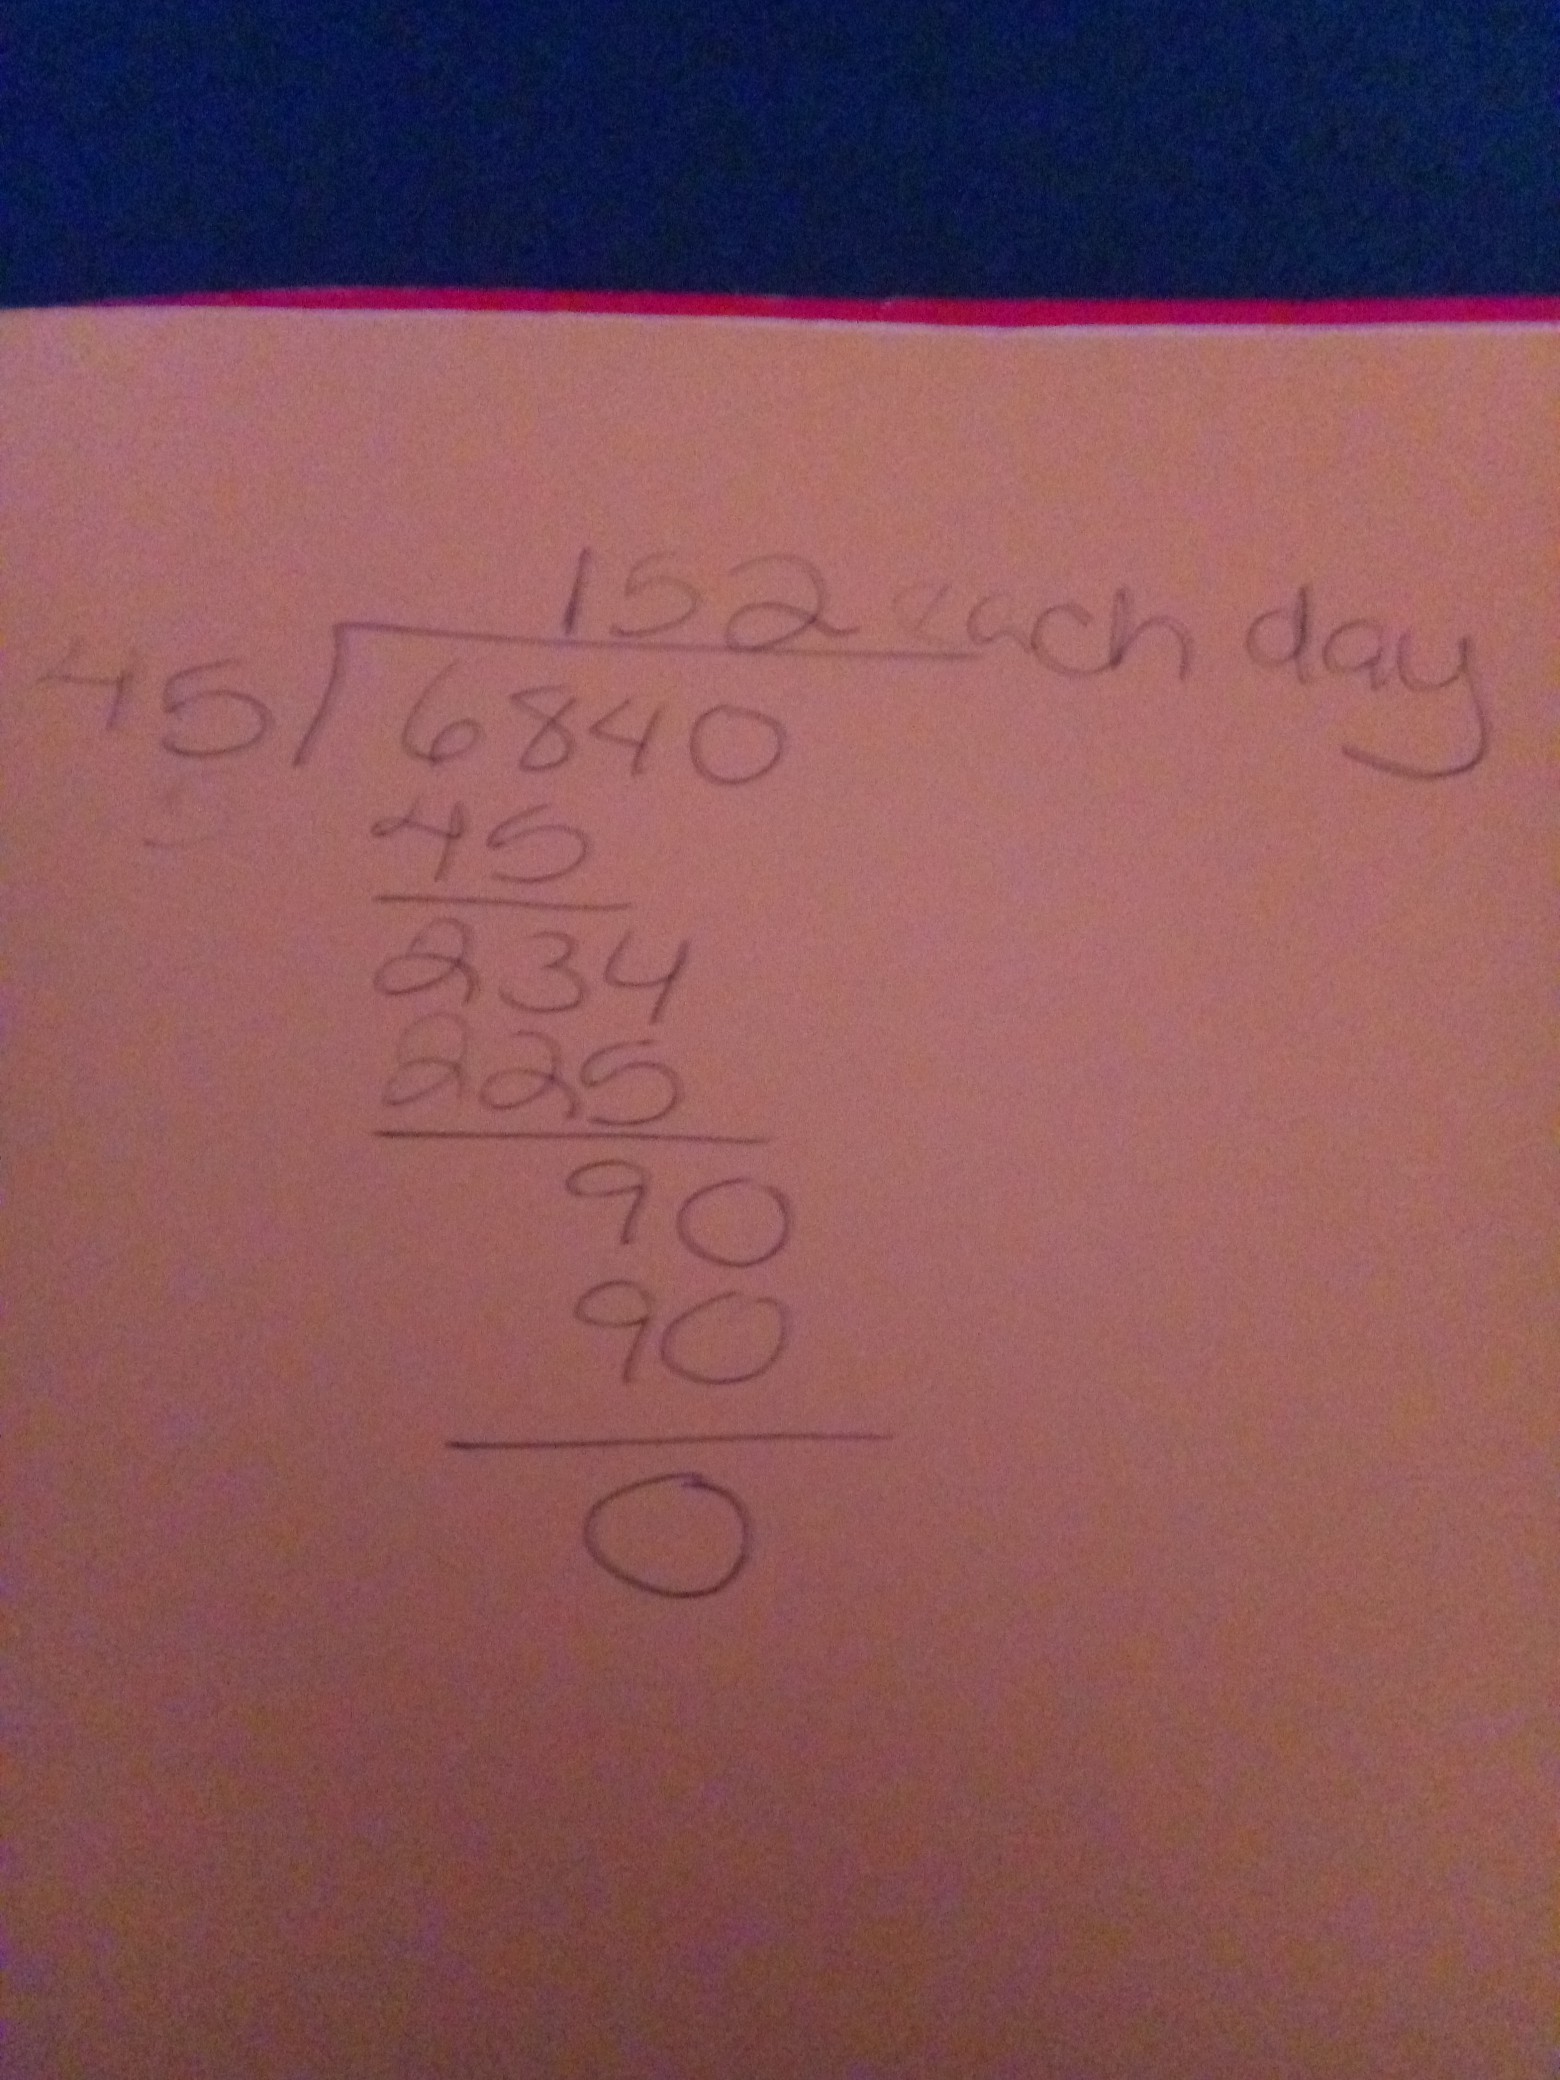 152 each day
45 6840
45
234
225
90
90
0